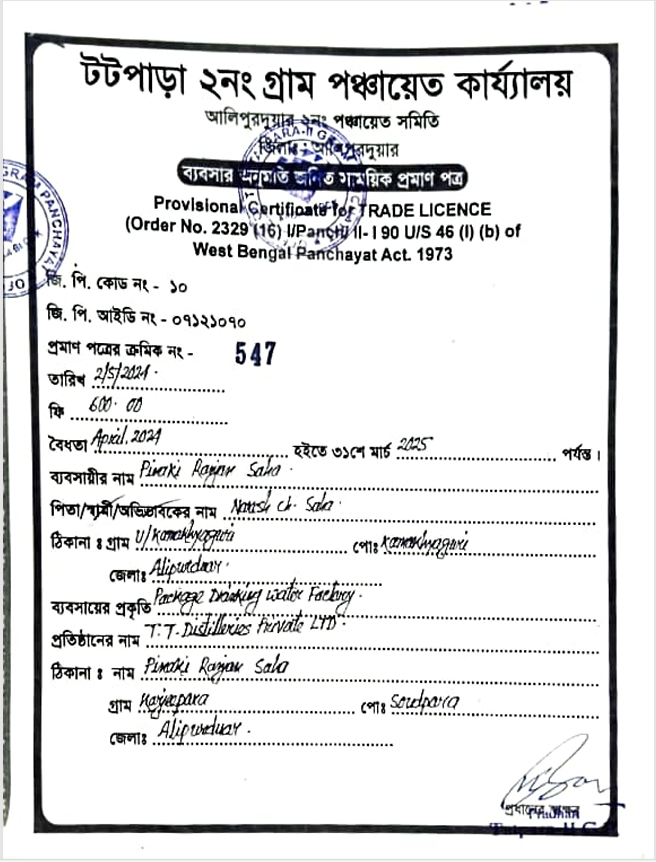 টটপাড়া ২নং গ্রাম পঞ্চায়েত কার্য্যালয়
আলিপুরদুয়ার ২নং পঞ্চায়েত সমিতি
জিলা : আলিপুরদুয়ার
ব্যবসার অনুমতি জনিত সাময়িক প্রমাণ পত্র
Provisional Certificate for TRADE LICENCE
(Order No. 2329 (16) I/Panch/ II- I 90 U/S 46 (I) (b) of
West Bengal Panchayat Act. 1973
জি. পি. কোড নং - ১০
জি. পি. আইডি নং - ০৭১২১০৭০
প্রমাণ পত্রের ক্রমিক নং - 547
তারিখ 2/5/2024
ফি 600.00
বৈধতা April, 2024 হইতে ৩১শে মার্চ 2025 পর্যন্ত।
ব্যবসায়ীর নাম Pinaki Ranjan Saha
পিতা/স্বামী/অভিভাবকের নাম Naresh Ch. Saha
ঠিকানা : গ্রাম U/Kamakhyaguri পোঃ Kamakhyaguri
জেলাঃ Alipurduar
ব্যবসায়ের প্রকৃতি Package Drinking Water Factory
প্রতিষ্ঠানের নাম T.T. Distilleries Private LTD
ঠিকানা : নাম Pinaki Ranjan Saha
গ্রাম পোঃ
জেলাঃ Alipurduar
প্রধানের
Pradhan
Tatpara-II G.P.